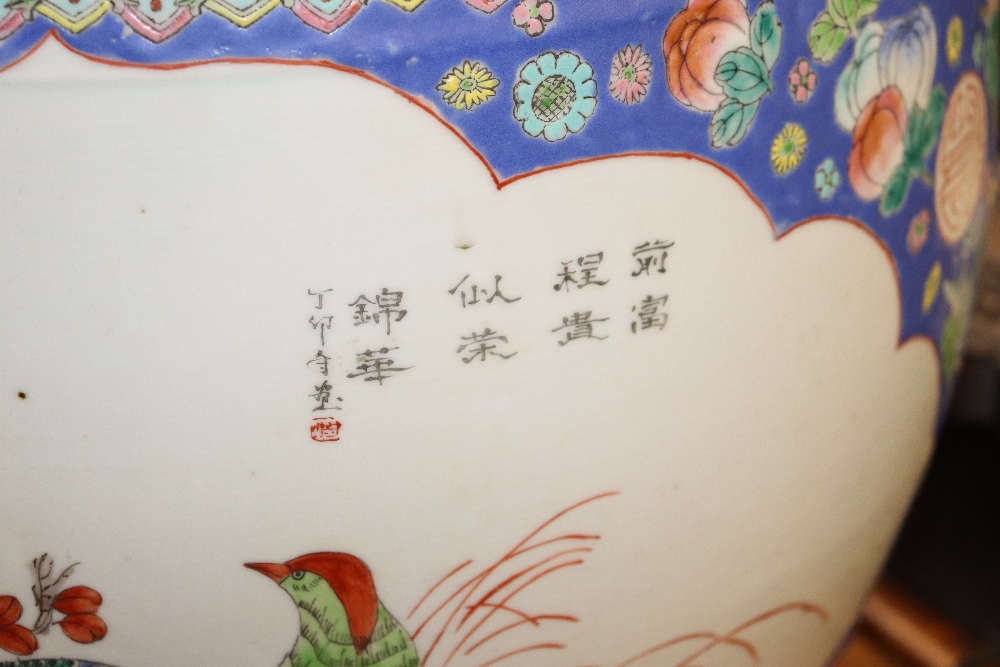 前程似錦
富貴荣華
丁卯年畫